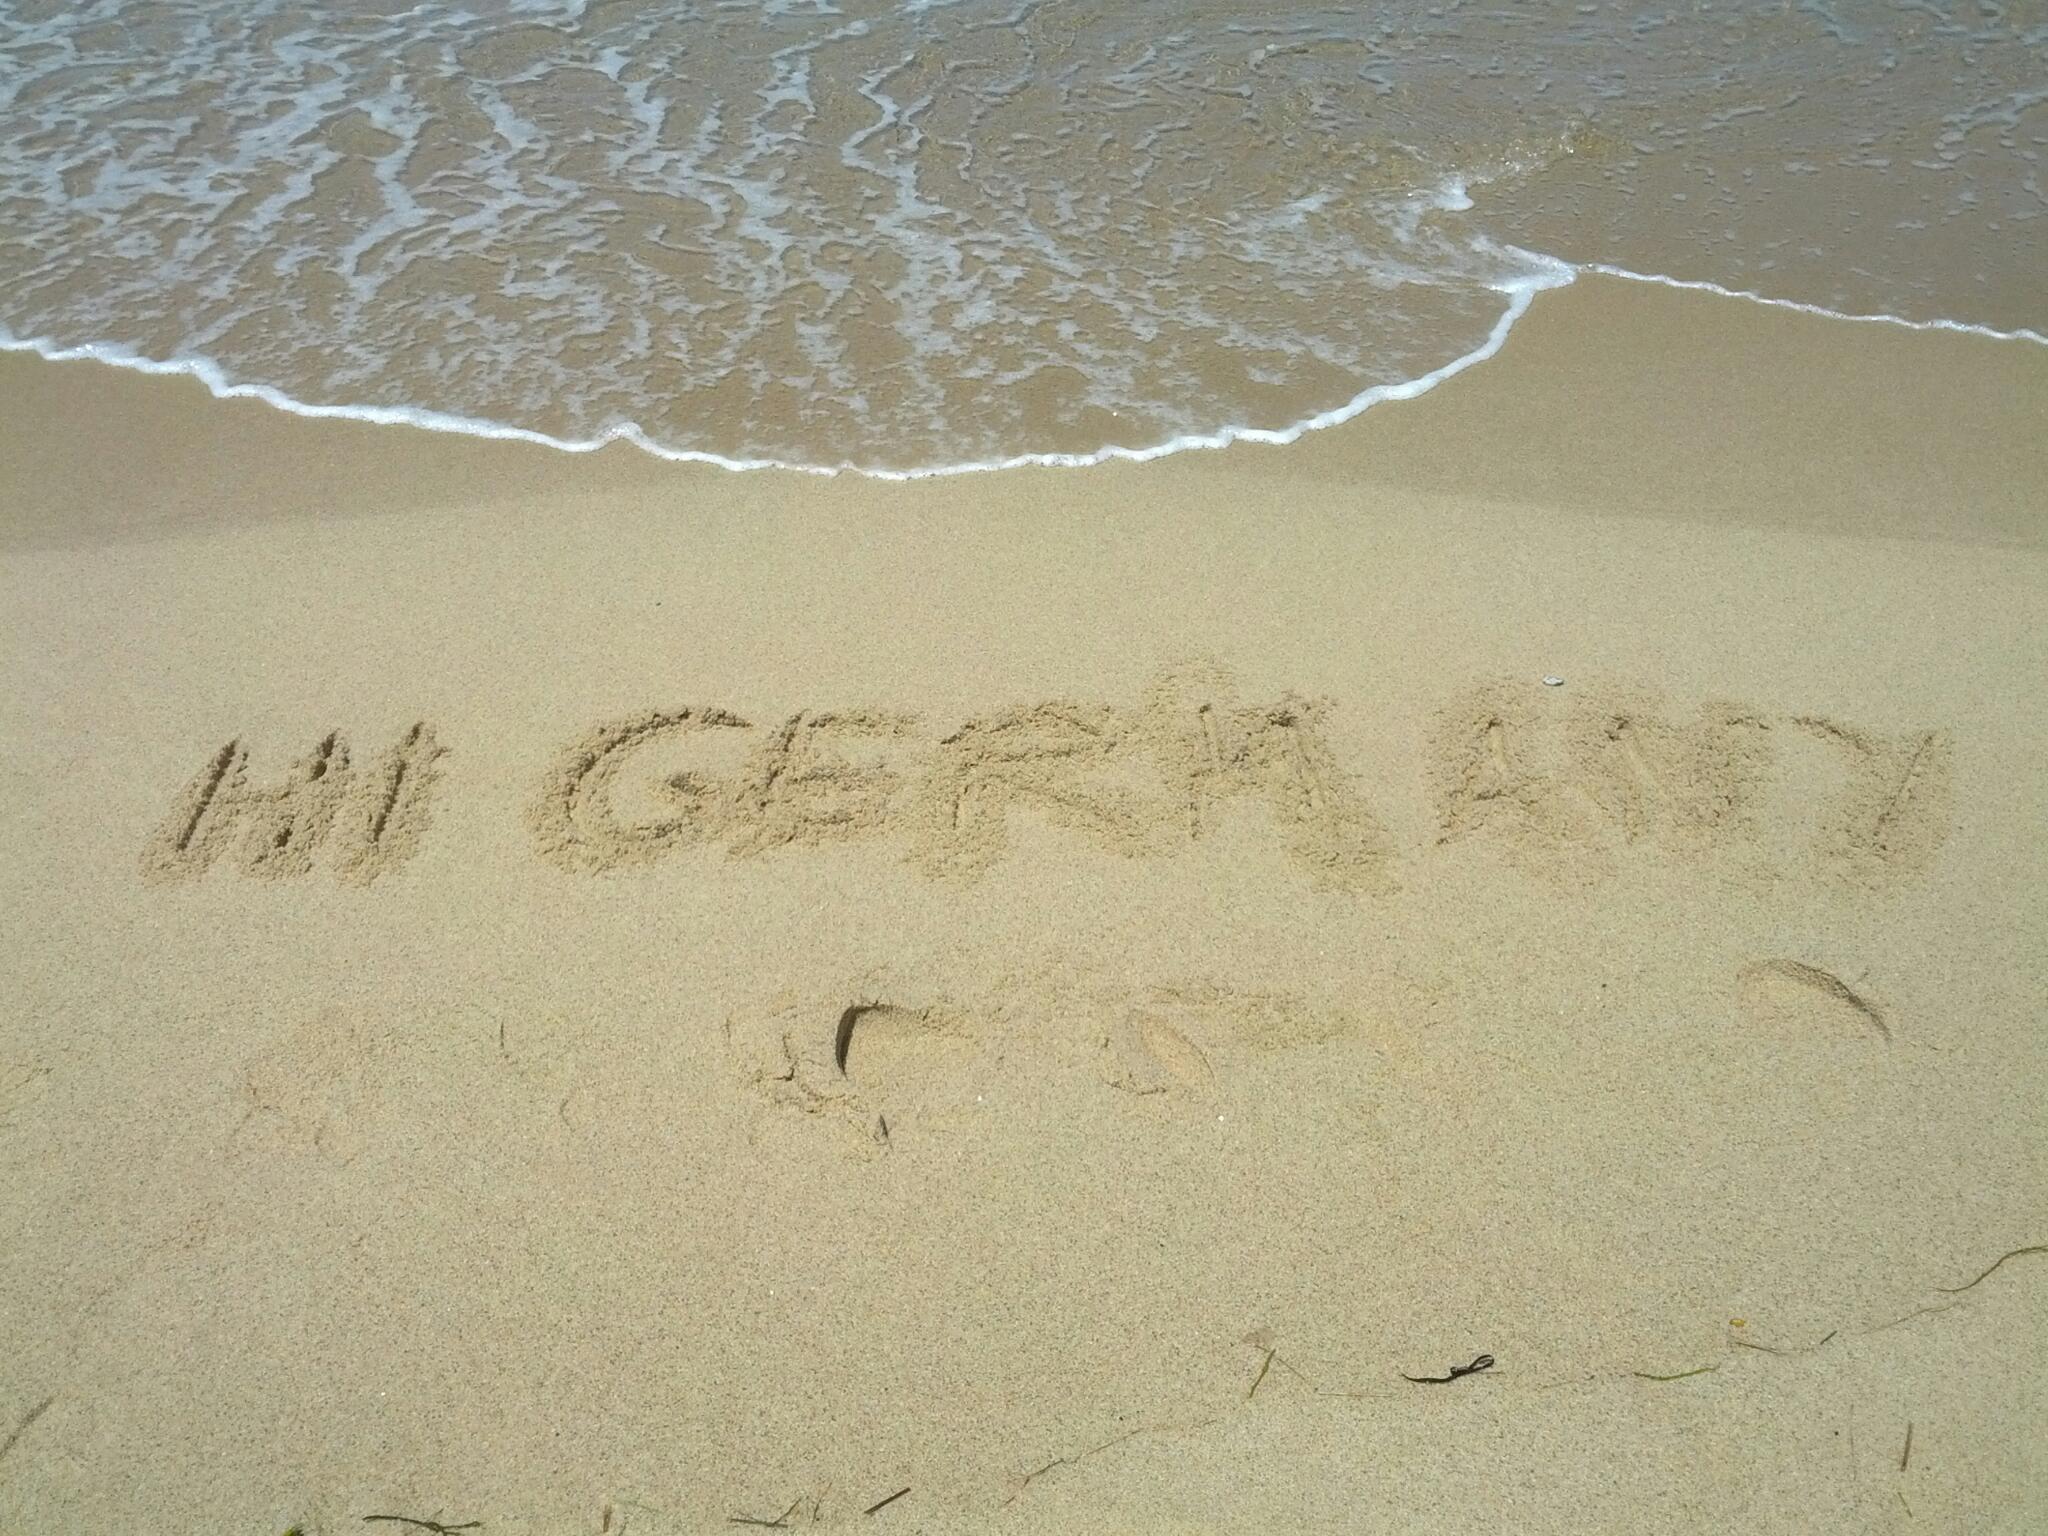 HI GERMANY